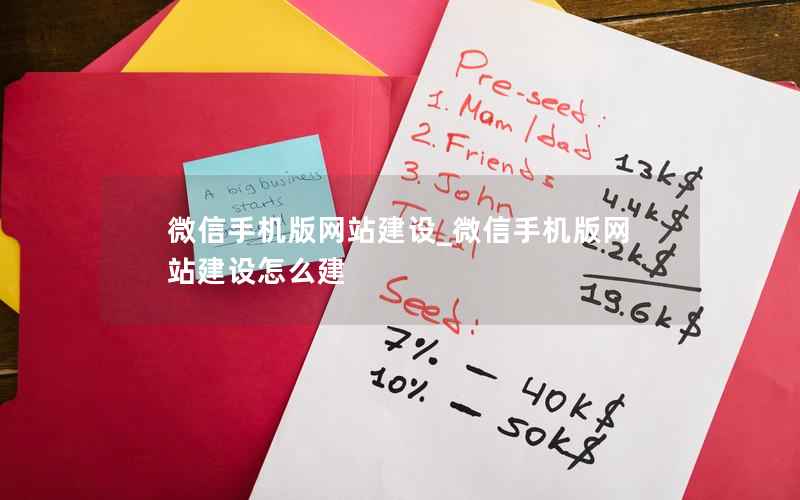 Pre-seed:
1. Mam/dad 13k$
2. Friends 4.4k$
3. John 2.2k$
Total 19.6k$
Seed:
7% — 40k$
10% — 50k$
A big business
starts
微信手机版网站建设_微信手机版网
站建设怎么建